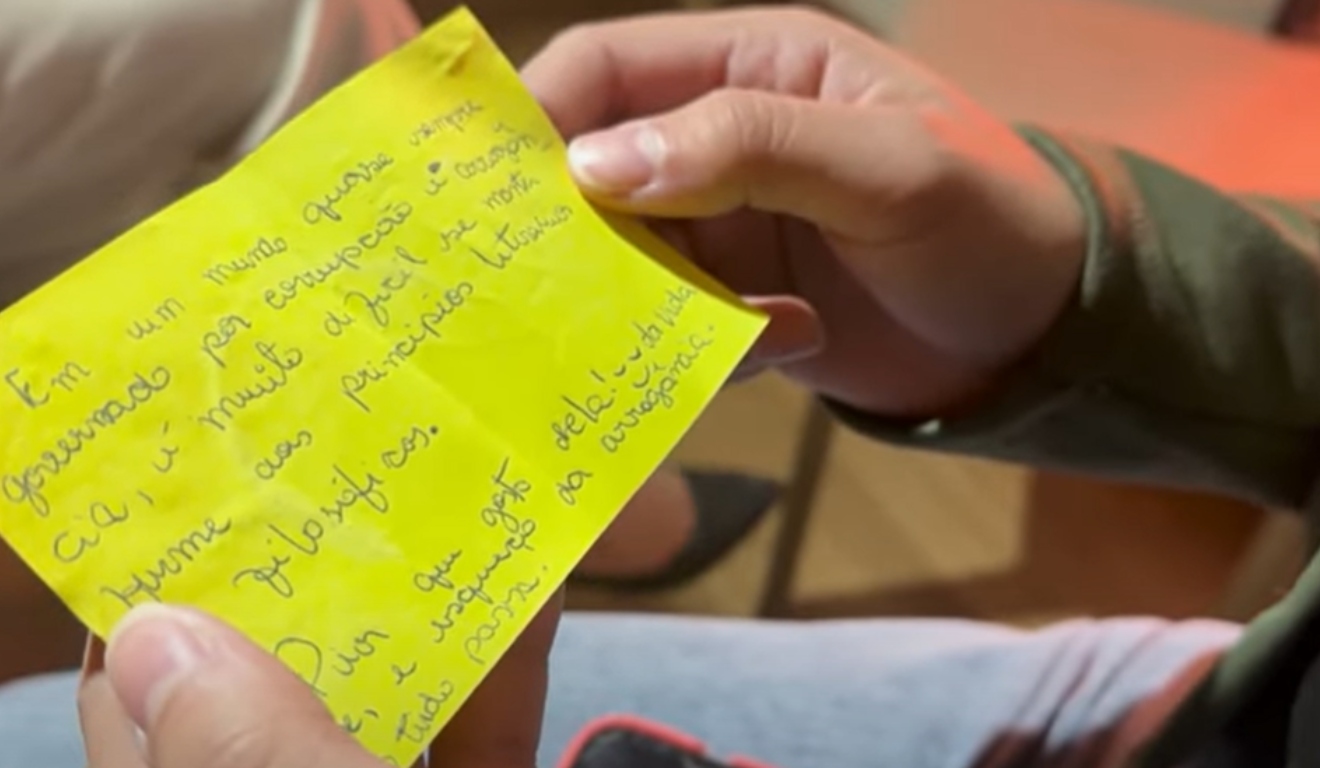 Em um mundo quase sempre
governado por corrupção e
cia, é muito difícil se
aos princípios
filosóficos.
Pior que gosto dela! da vida
e, e esqueço da arrogância.
tudo passa.